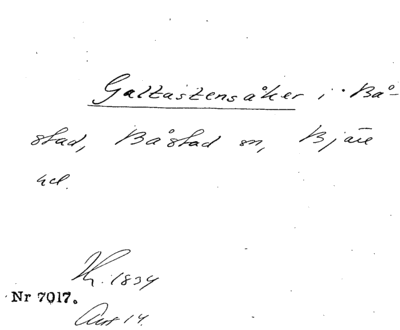 Galtastensåker i Bå-
stad, Båstad sn, Bjäre
hd.
K. 1834
Nr 7017.
Aug 14.